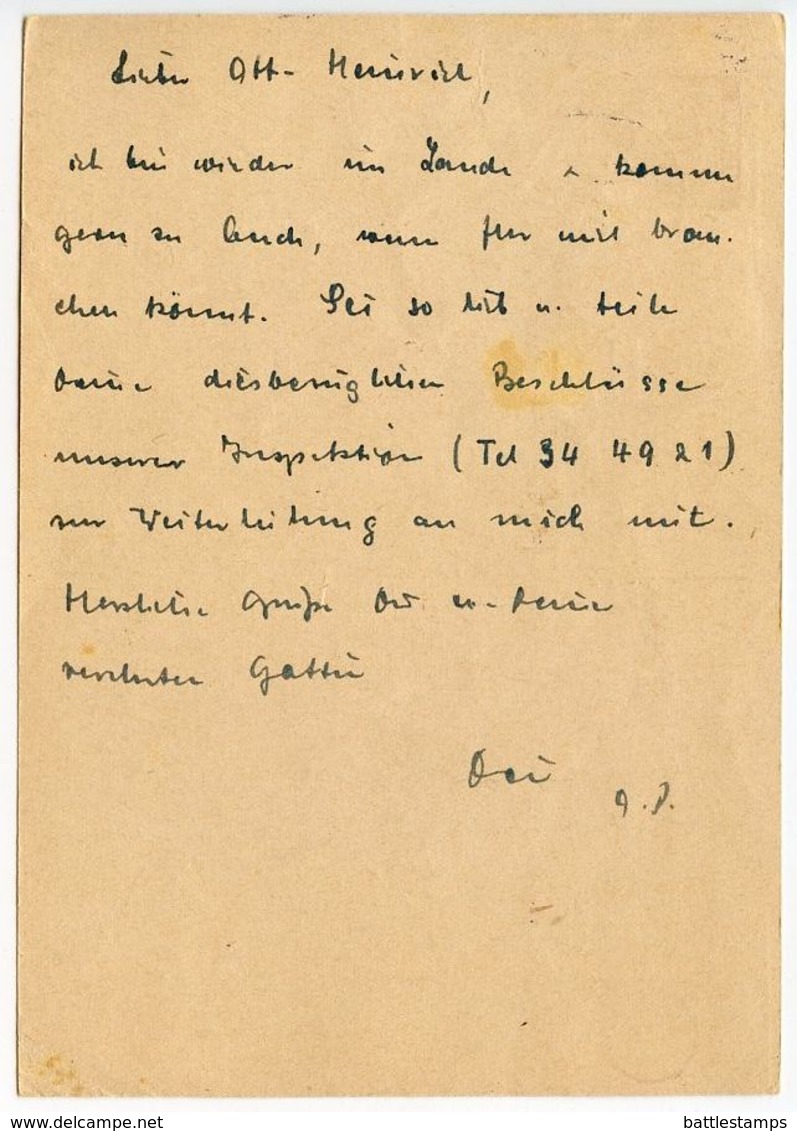 Lieber Ott-Heinrich,
ich bin wieder im Lande u. komme
gern zu Euch, wenn Ihr mich brau-
chen könnt. Sei so lieb u. teile
Deine diesbezüglichen Beschlüsse
unserer Inspektion (Tel 34 49 21)
zur Weiterleitung an mich mit.
Herzliche Grüße Dir u. Deiner
verehrten Gattin
Dein
A.P.
www.delcampe.net
battlestamps